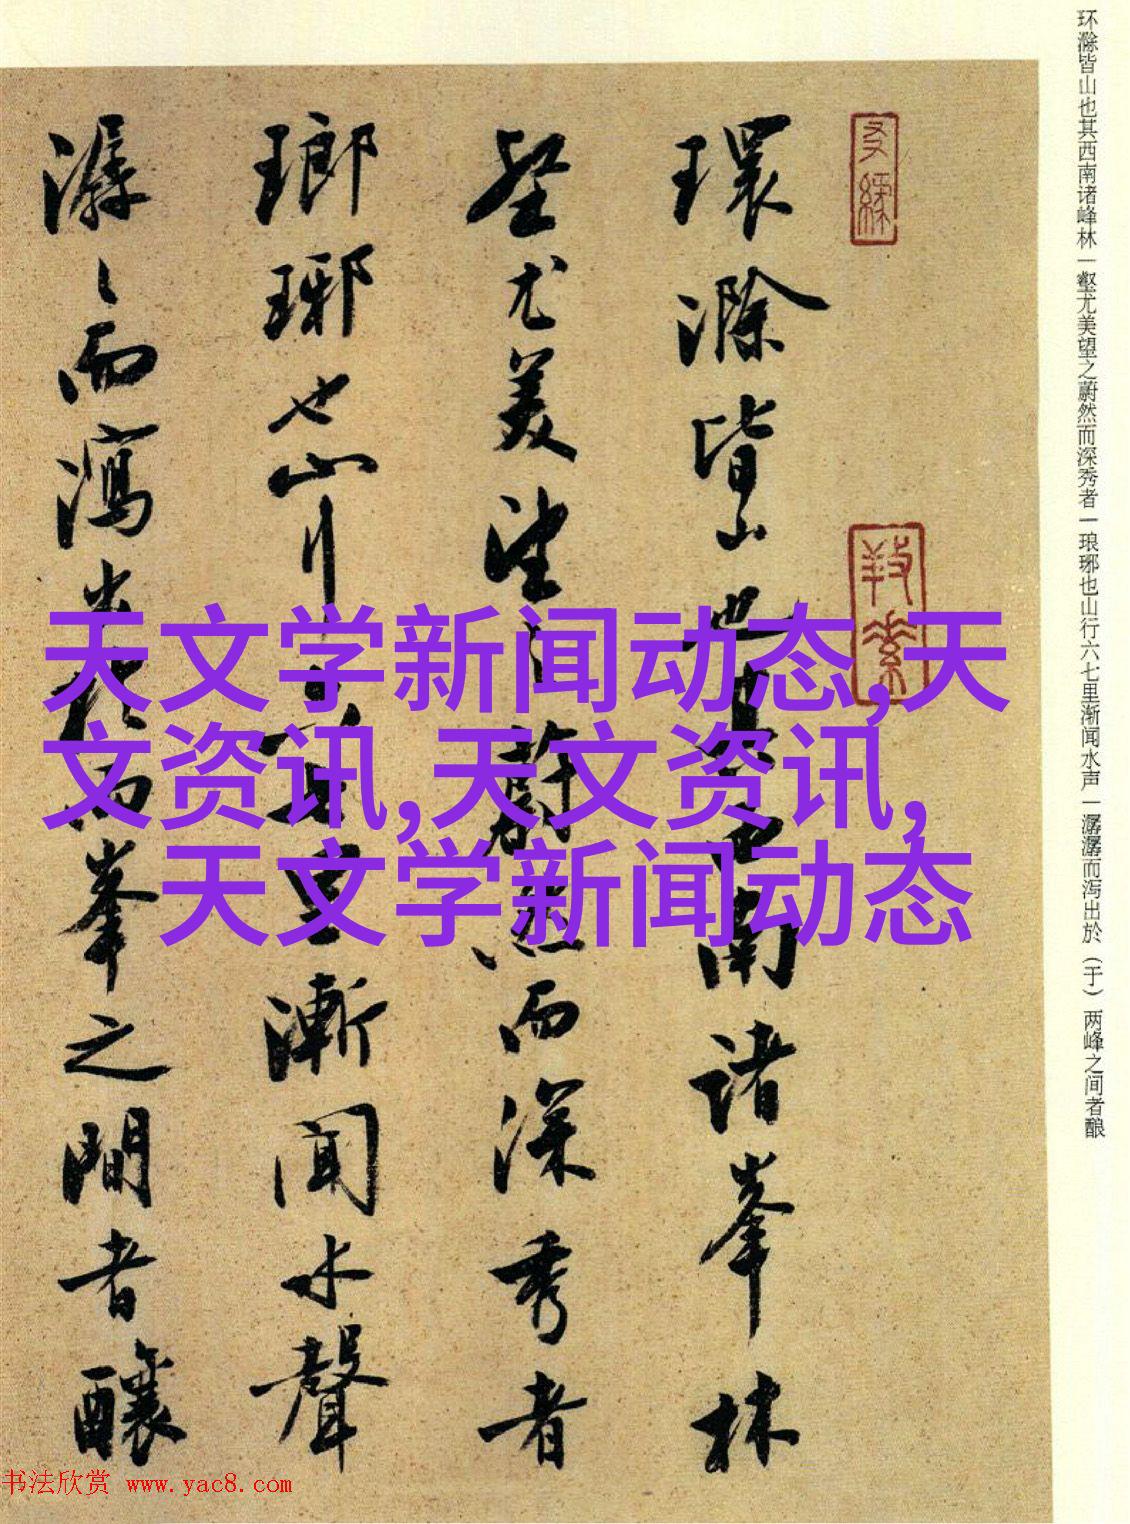 环滁皆山也其西南诸峰林一壑尤美望之蔚然而深秀者一琅琊也山行六七里渐闻水声一潺潺而泻出於（于）两峰之间者酿
環滁皆山也其西南諸峯林
壑尤美望之蔚然而深秀者
瑯琊也山行六七里漸聞水聲
潺〻而瀉出於兩峯之間者釀
天文学新闻动态,天
文资讯,天文资讯,
天文学新闻动态
书法欣赏 www.yac8.com